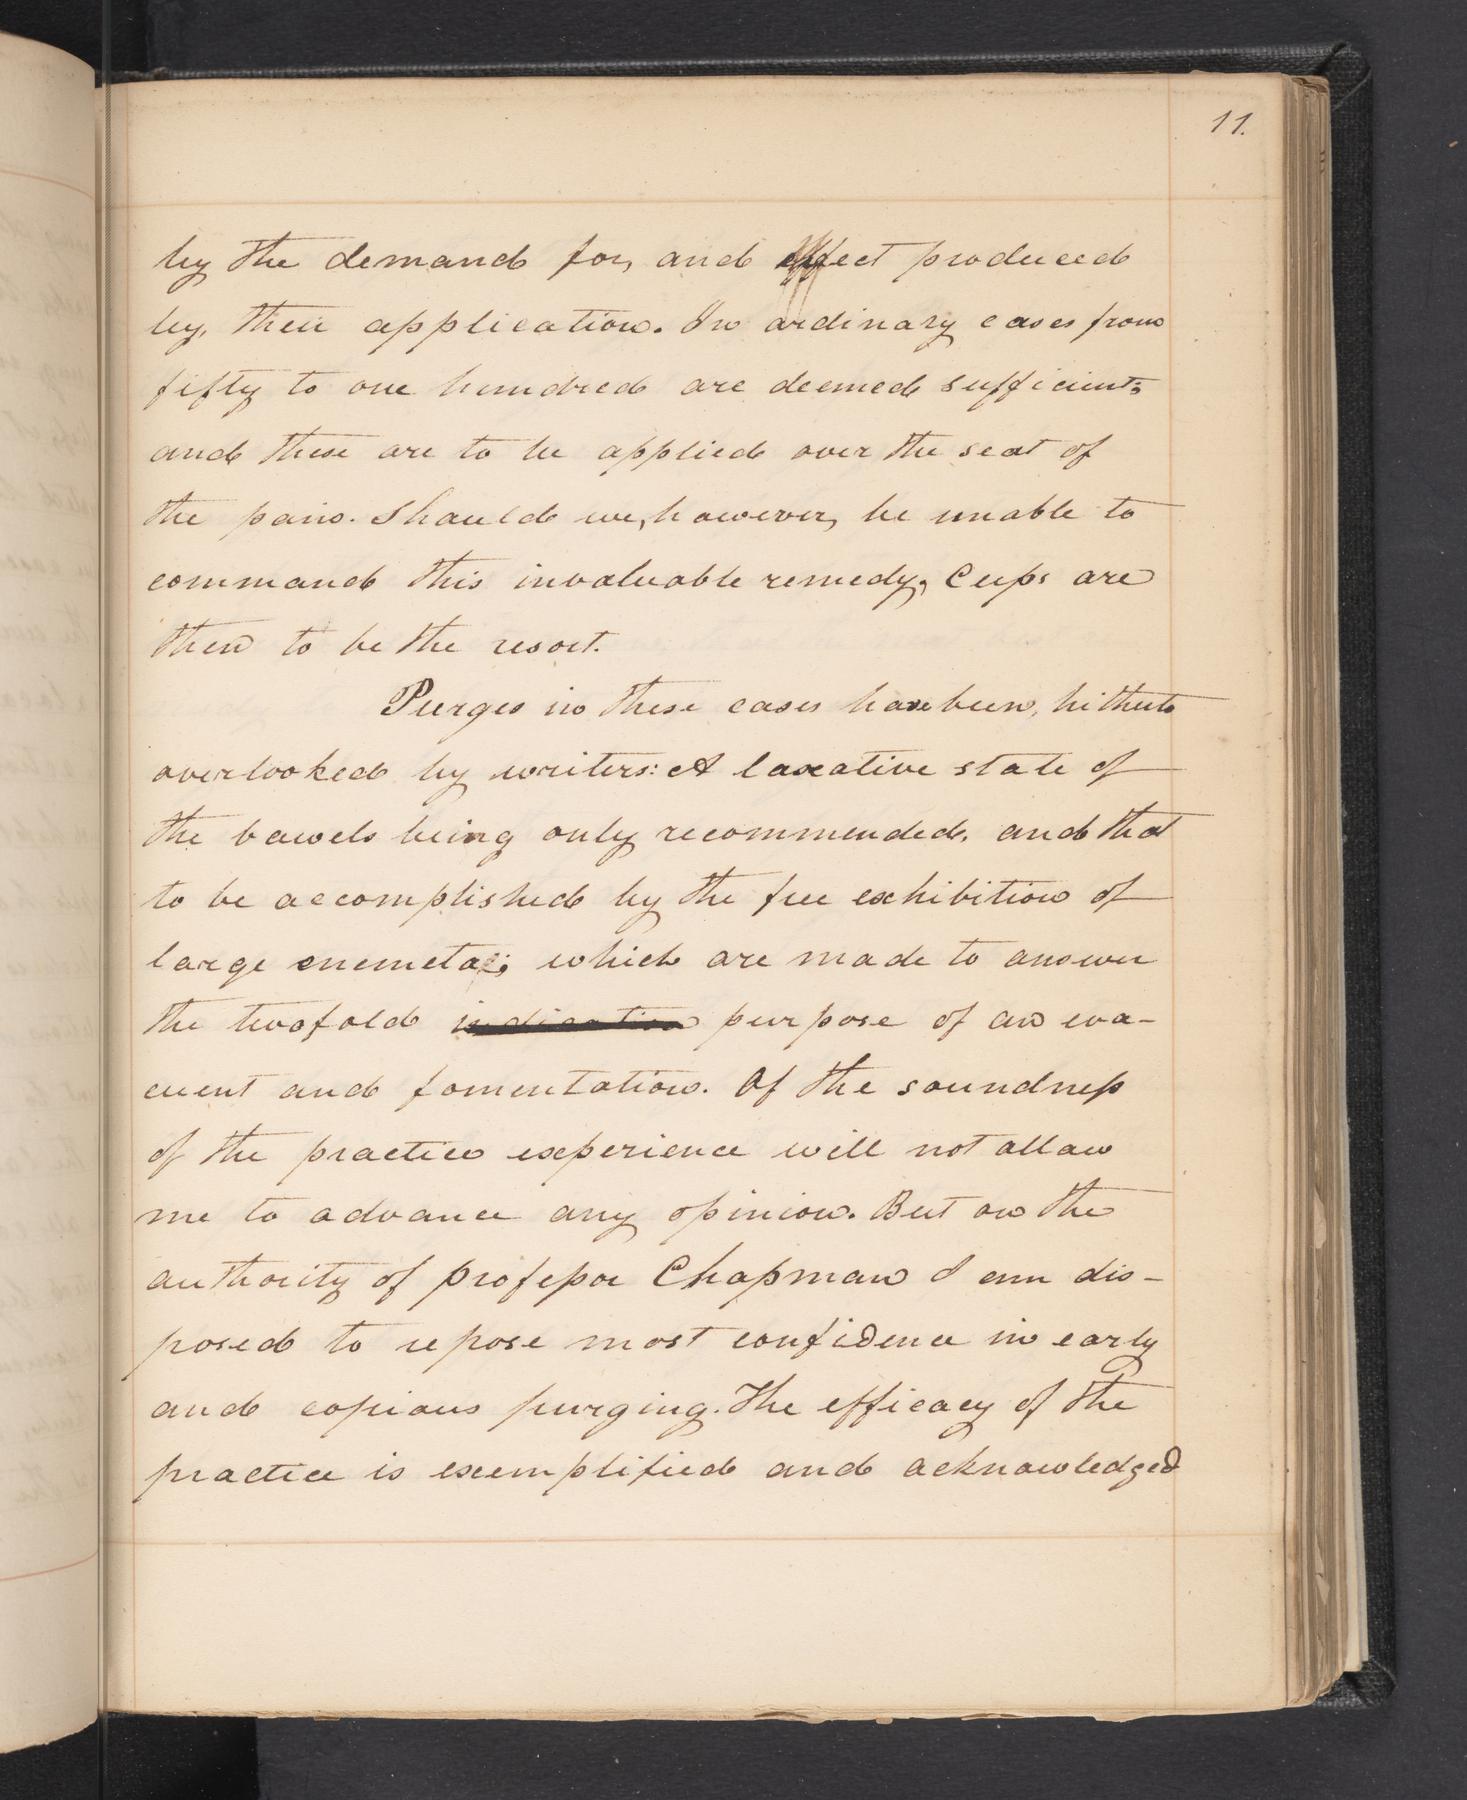 11.
by the demand for, and effect produced
by, their application. In ordinary cases from
fifty to one hundred are deemed sufficient;
and these are to be applied over the seat of
the pain. Should we, however, be unable to
command this invaluable remedy, Cups are
then to be the resort.
Purges in these cases have been, hitherto
overlooked by writers: A laxative state of
the bowels being only recommended, and that
to be accomplished by the free exhibition of
large enemeta; which are made to answer
the twofold indication purpose of an eva-
cuent and fomentation. Of the soundness
of the practice experience will not allow
me to advance any opinion. But on the
authority of professor Chapman I am dis-
posed to repose most confidence in early
and copious purging. The efficacy of the
practice is exemplified and acknowledged